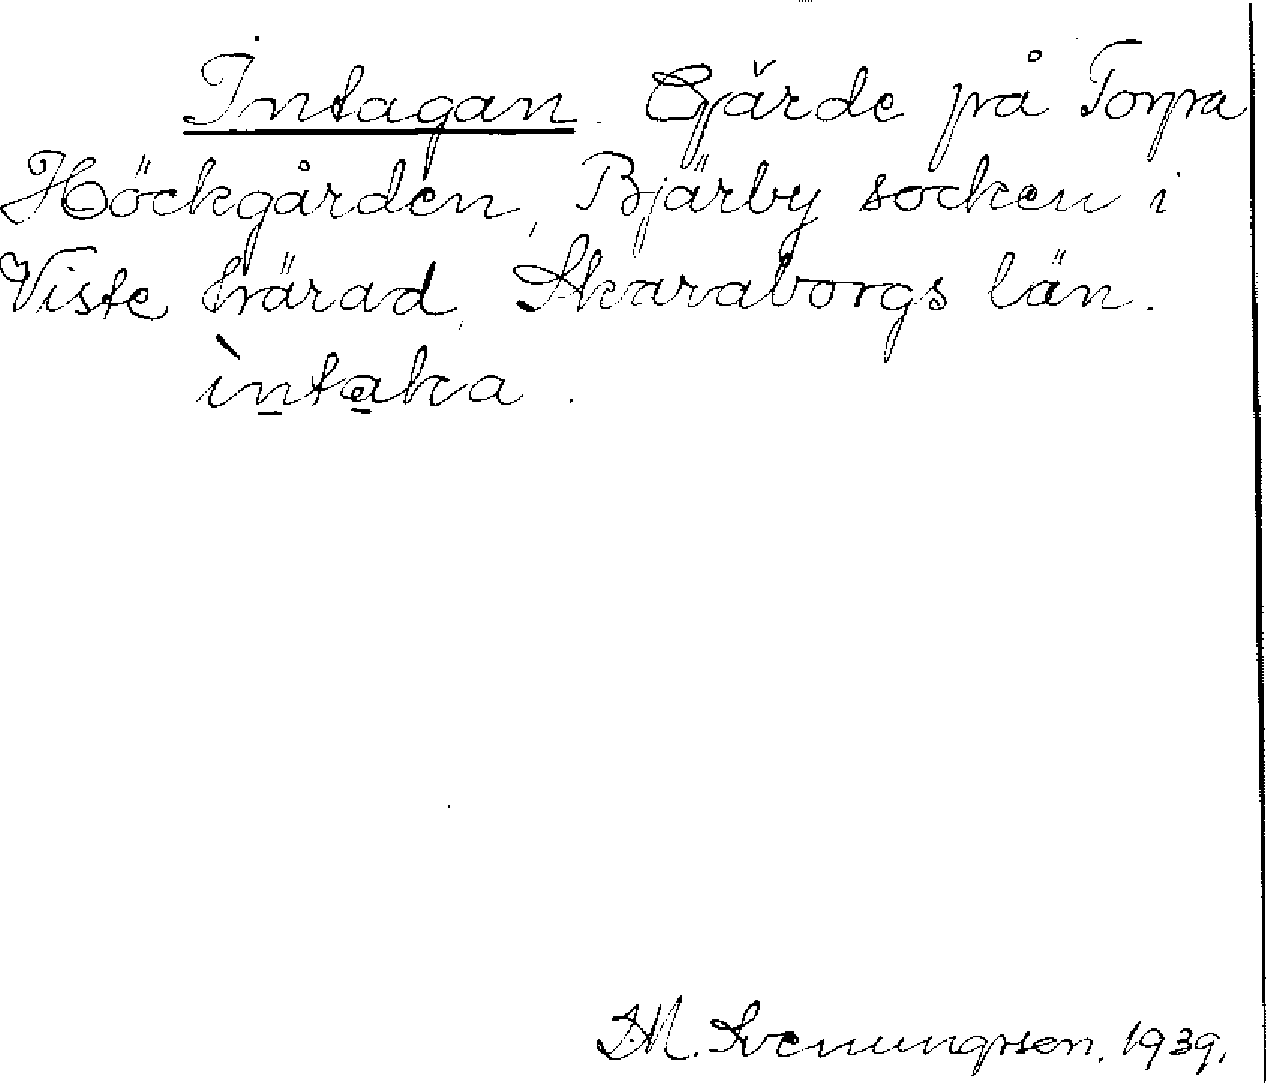 Intagan. Gjärde på Torpa
Höckgården, Bjärby socken i
Viste härad, Skaraborgs län.
ìntaka.
Svenungsson. 1939.